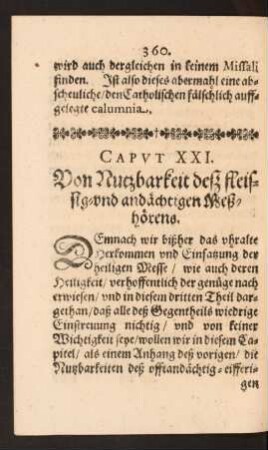 360.
wird auch dergleichen in keinem Missali
finden. Ist also dieses abermahl eine ab-
scheuliche/den Catholischen fälschlich auff-
gelegte calumnia.
CAPVT XXI.
Von Nutzbarkeit deß fleis-
sig-vnd andächtigen Meß-
hörens.
DEmnach wir bißher das vhralte
Herkommen vnd Einsatzung der
heiligen Messe / wie auch deren
Heiligkeit / verhoffentlich der genüge nach
erwiesen / vnd in diesem dritten Theil dar-
gethan / daß alle deß Gegentheils wiedrige
Einstreuung nichtig / vnd von keiner
Wichtigkeit seye / wollen wir in diesem Ca-
pitel / als einem Anhang deß vorigen / die
Nutzbarkeiten deß offtandächtig-eifferi-
gen